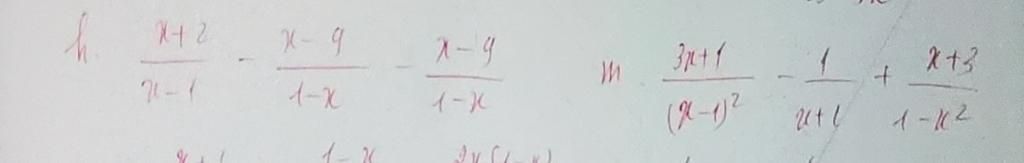 h. \frac{x+2}{x-1} - \frac{x-9}{1-x} - \frac{x-9}{1-x}
m. \frac{3x+1}{(x-1)^2} - \frac{1}{x+1} + \frac{x+3}{1-x^2}
1-x